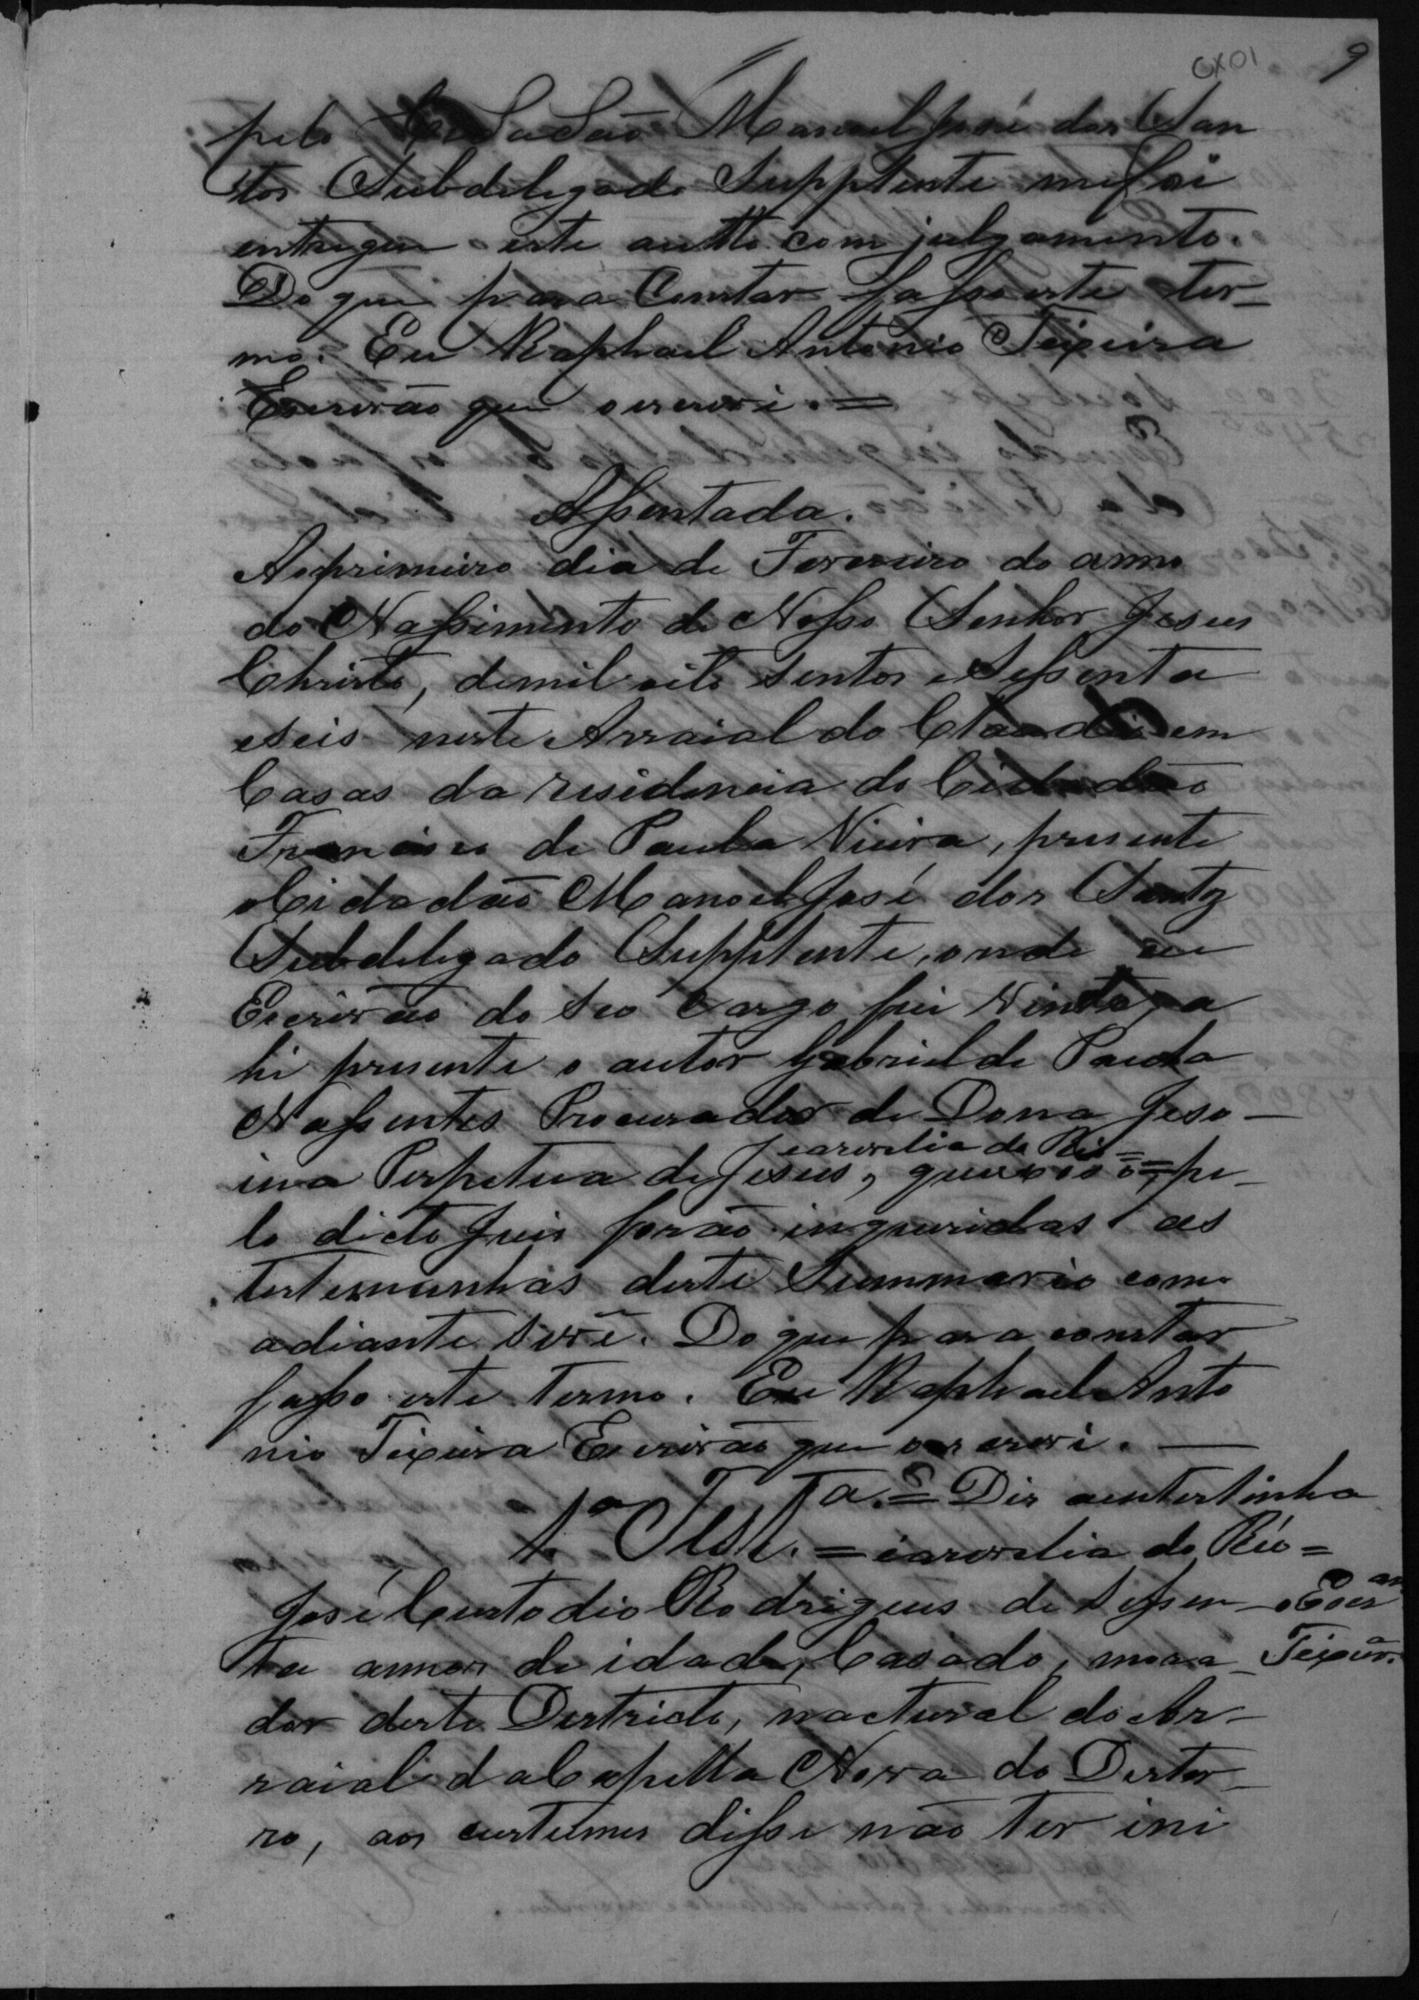 CX01 9
pelo Cidadão Manoel José dos San
tos Subdelegado Supplente me foi
entregue este autto com julgamento.
Do que para Constar fasso este ter-
mo. Eu Raphael Antonio Teixeira
Escrivão que o escrevi. =
Assentada.
Ao primeiro dia de Fevereiro do anno
do Nassimento de Nosso Senhor Jesus
Christo, de mil oito sentos e Sessenta
e seis neste Arraial do Claudio em
Casas da residencia do Cidadão
Francisco de Paula Vieira, presente
o Cidadão Manoel José dos Santos
Subdelegado Supplente, onde eu
Escrivão do seo Cargo fui vindo, a
hi presente o autor Gabriel de Paula
Nassentes Procurador de Dona Jeso-
=earevelia do Réo=
ina Perpetua de Jesus, pe-
lo dicto Juis forão inqueridas as
testemunhas deste Summario como
adiante se vê. Do que para constar
fasso este termo. Eu Raphael Anto
nio Teixeira Escrivão que o escrevi. —
1ª Testª. = Dis a entertinha
= earevelia do Réo =
José Custodio Rodrigues de sessen- o Escram
ta annos de idade, Casado, mora- Teixrª.
dor deste Destricto, nactural do Ar-
raial da Capella Nova do Dester-
ro, aos custumes disse não ter ini